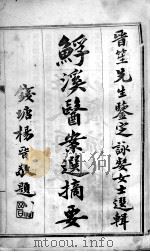 晉笙先生鑒定詠絜女士選輯
鯚溪醫案選摘要
錢塘楊晉敬題